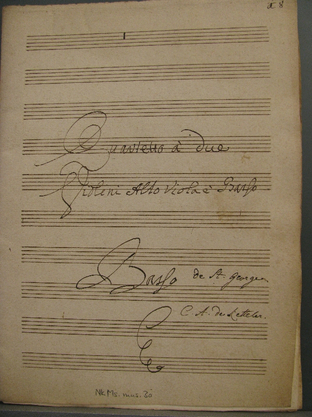 Quartetto à due
Violini Alto Viola e Basso
Basso
de St. George
C. A. de
Nk Ms. mus. 20